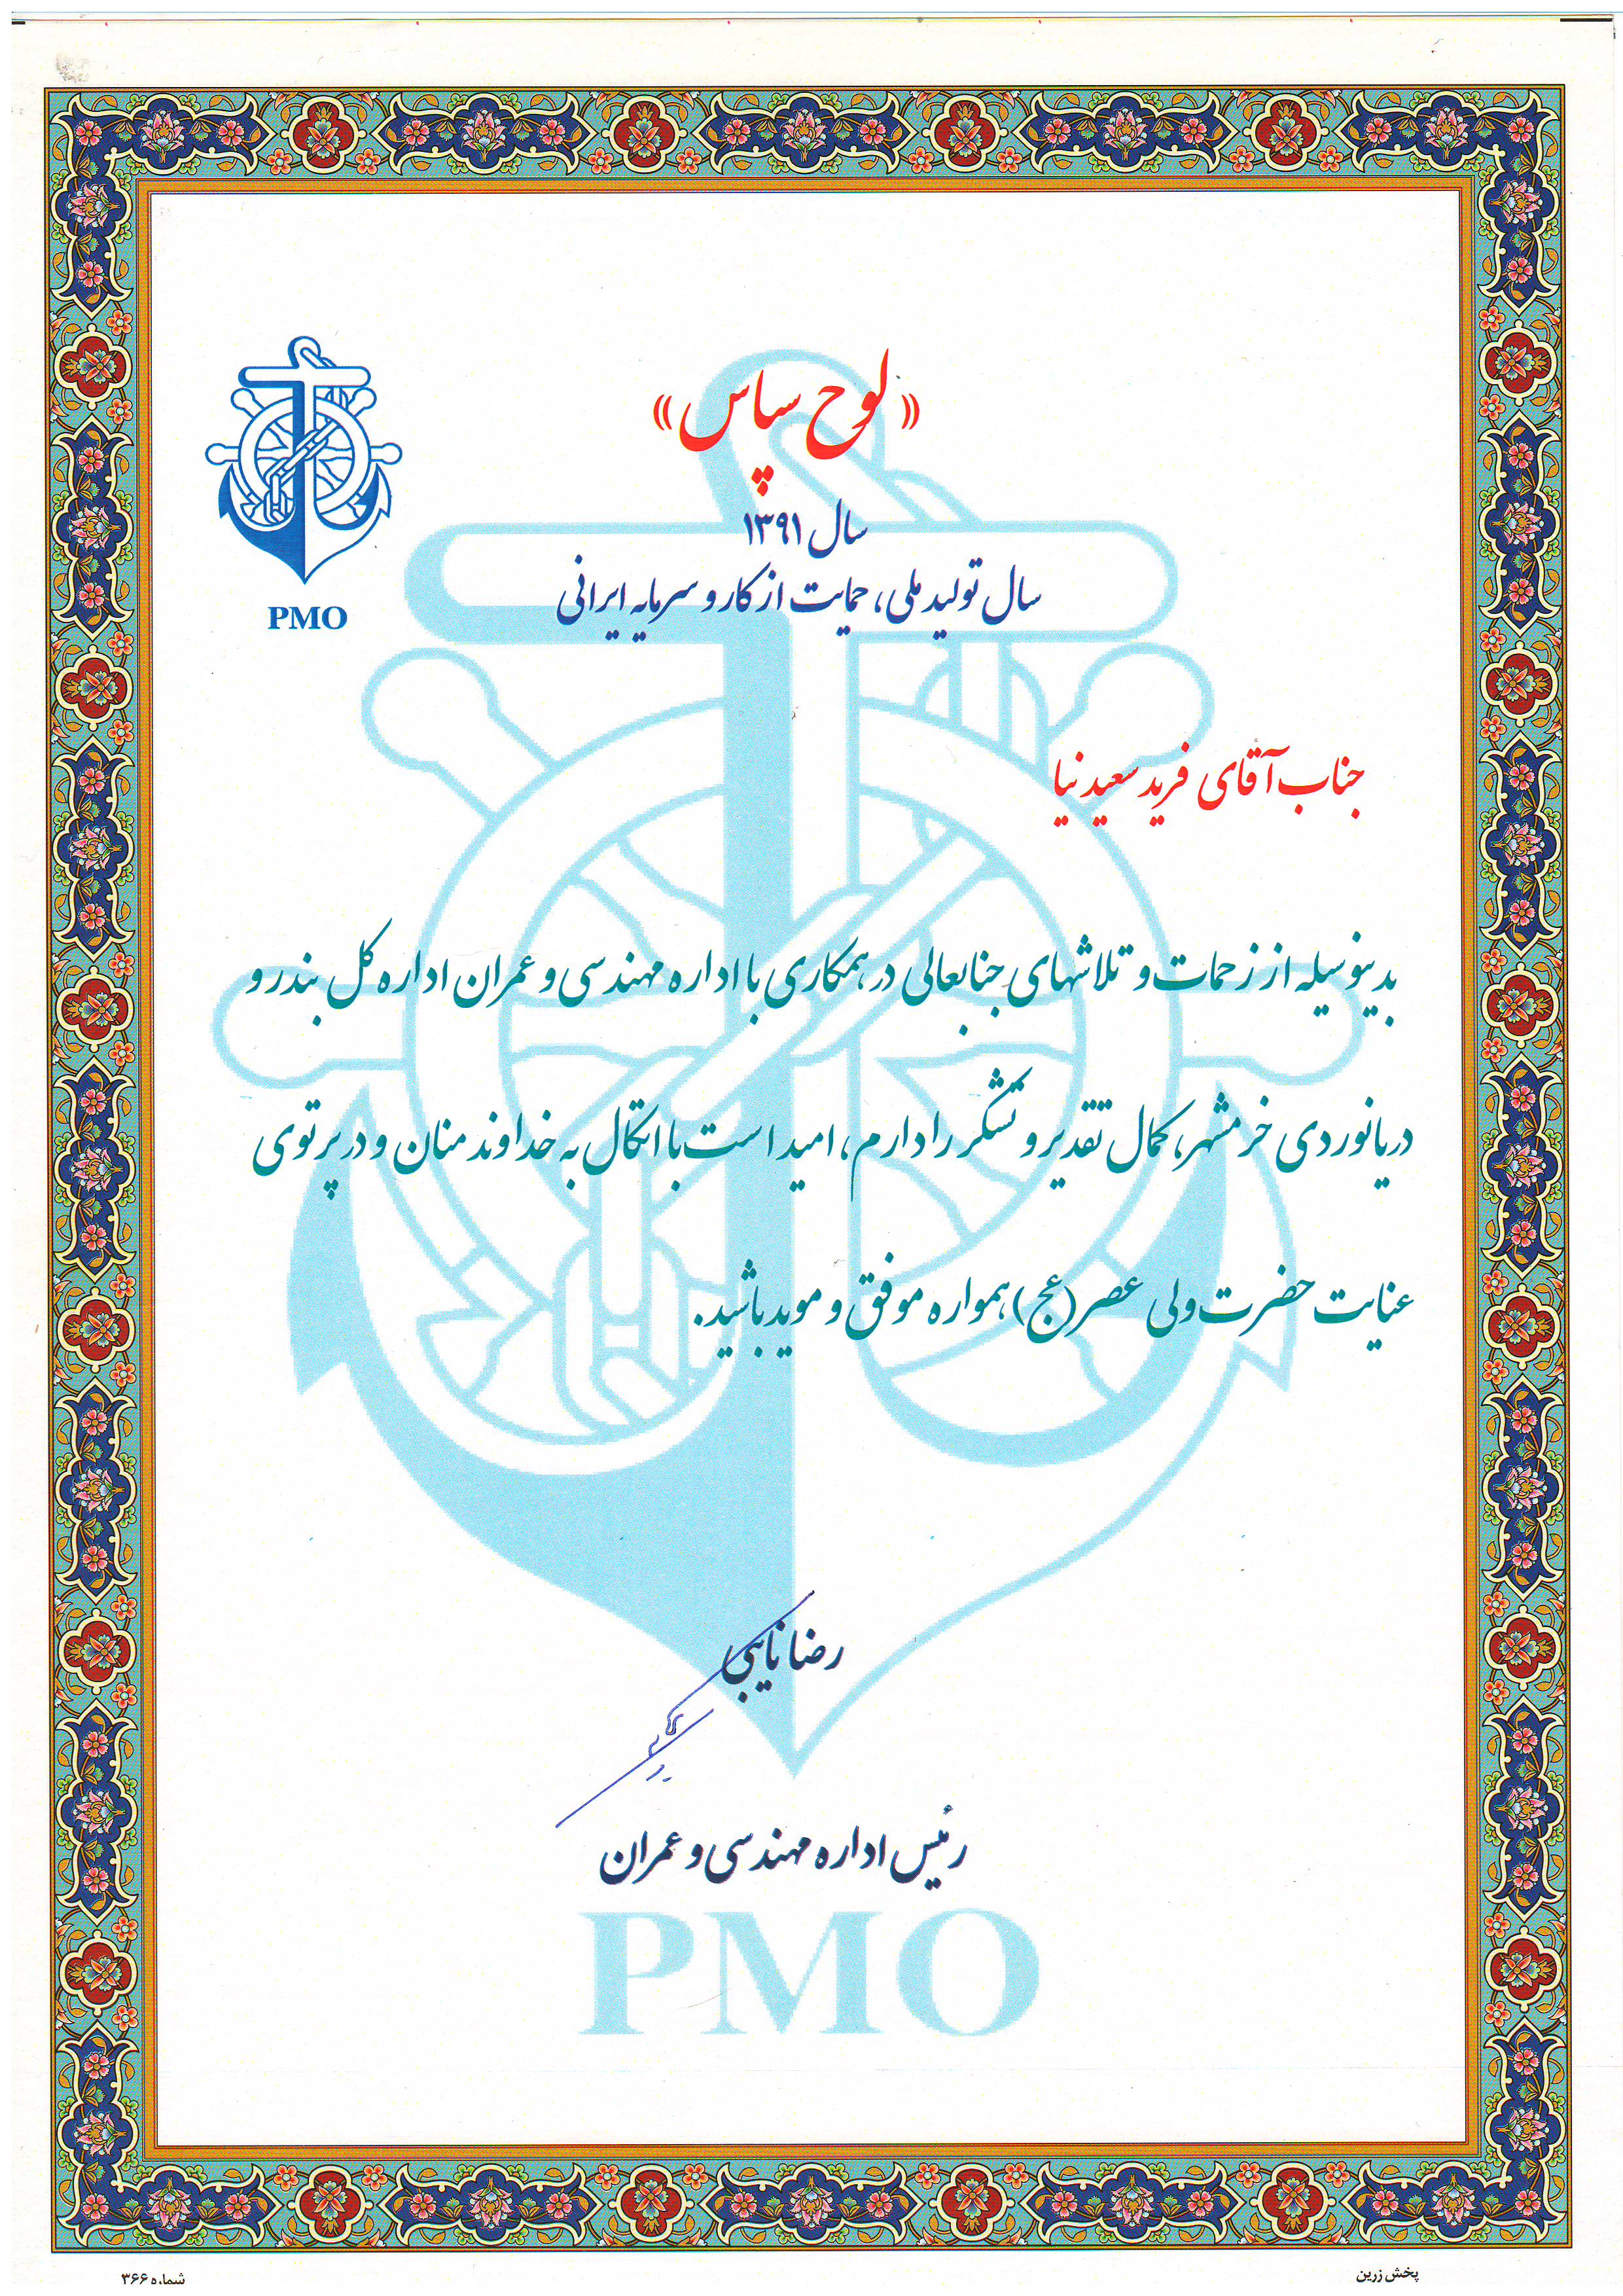 «لوح سپاس»
سال ۱۳۹۱
سال تولید ملی، حمایت از کار و سرمایه ایرانی
PMO
جناب آقای فرید سعیدنیا
بدینوسیله از زحمات و تلاشهای جنابعالی در همکاری با اداره مهندسی و عمران اداره کل بندر و
دریانوردی خرمشهر، کمال تقدیر و تشکر را دارم، امید است با اتکال به خداوند منان و در پرتوی
عنایت حضرت ولی عصر (عج) همواره موفق و موید باشید.
رضا نایبی
رئیس اداره مهندسی و عمران
PMO
پخش زرین
شماره ۳۶۶